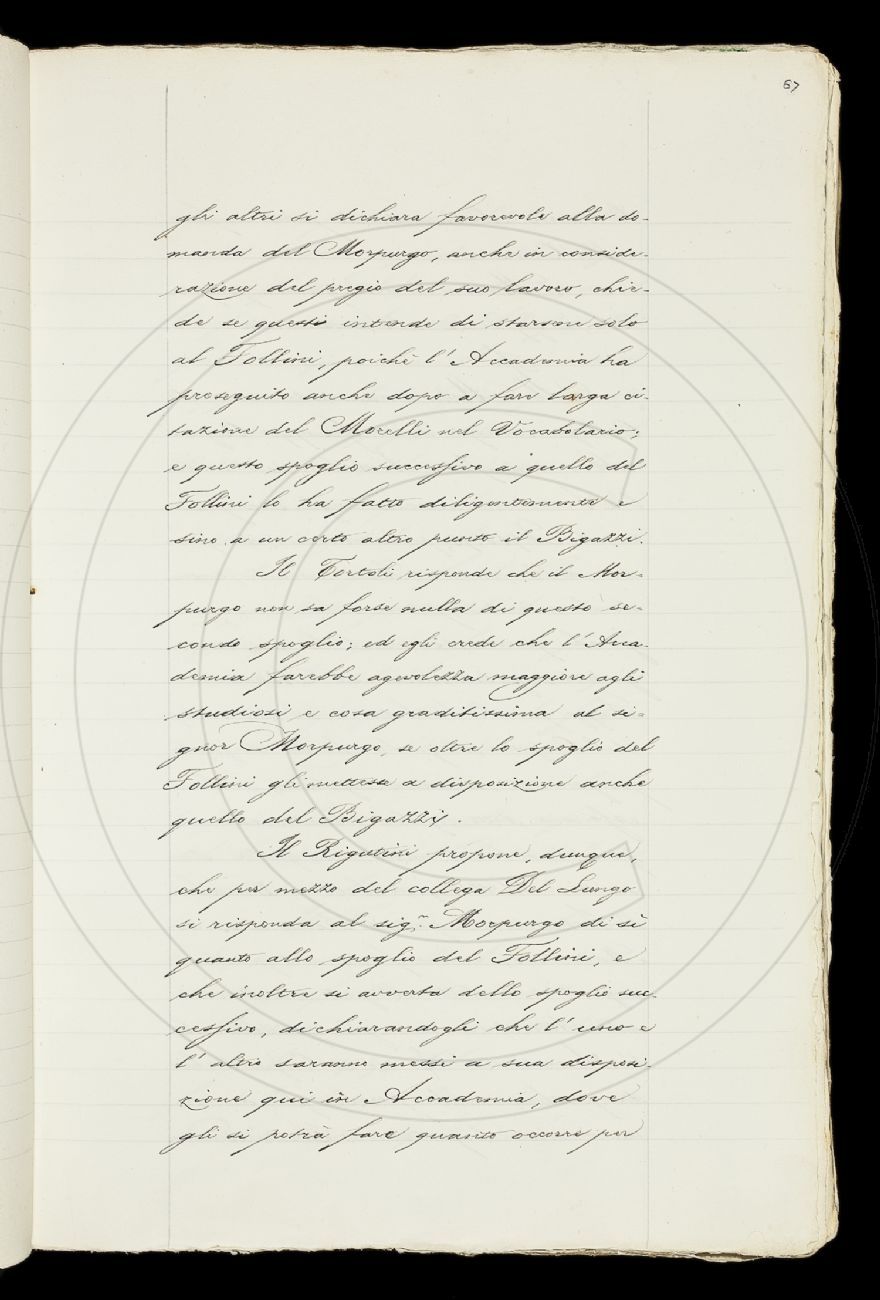 67
gli altri si dichiara favorevole alla do-
manda del Morpurgo, anche in conside-
razione del pregio del suo lavoro, chie-
de se questi intende di starsene solo
al Follini, poichè l' Accademia ha
proseguito anche dopo a fare larga ci-
tazione del Morelli nel Vocabolario;
e questo spoglio successivo a quello del
Follini lo ha fatto diligentemente e
sino a un certo altro punto il Bigazzi.
Il Tortoli risponde che il Mor-
purgo non sa forse nulla di questo se-
condo spoglio; ed egli crede che l' Acca-
demia farebbe agevolezza maggiore agli
studiosi e cosa graditissima al si-
gnor Morpurgo, se oltre lo spoglio del
Follini gli mettesse a disposizione anche
quello del Bigazzi.
Il Rigutini propone, dunque,
che per mezzo del collega Del Lungo
si risponda al sigr. Morpurgo di sì
quanto allo spoglio del Follini, e
che inoltre si avverta dello spoglio suc-
cessivo, dichiarandogli che l' uno e
l' altro saranno messi a sua disposi-
zione qui in Accademia, dove
gli si potrà fare quanto occorre per